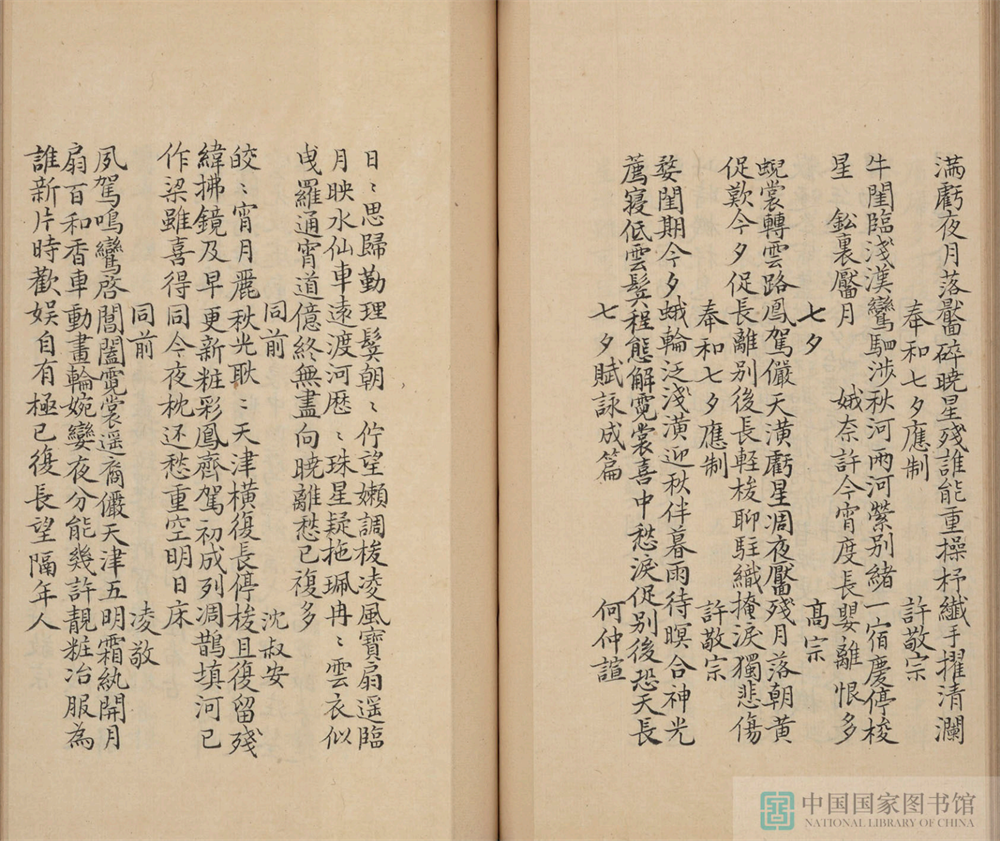 滿虧夜月落靨碎曉星殘誰能重操杼纖手擢清瀾
奉和七夕應制 許敬宗
牛閨臨淺漢鸞駟涉秋河兩河縈别緒一宿慶停梭
星 鈆裏靨月 娥奈許今宵度長嬰離恨多
七夕 髙宗
蜺裳轉雲路鳳駕儼天潢虧星凋夜靨殘月落朝黃
促歎今夕促長離别後長輕梭聊駐織掩淚獨悲傷
奉和七夕應制 許敬宗
婺閨期今夕蛾輪泛淺潢迎秋伴暮雨待暝合神光
薦寢低雲髩程態解霓裳喜中愁淚促别後恐天長
七夕賦詠成篇 何仲諠
日〻思歸勤理髩朝〻佇望嬾調梭凌風寶扇遥臨
月映水仙車遠渡河厯〻珠星疑拖珮冉〻雲衣似
曵羅通宵道億終無盡向曉離愁已複多
同前 沈叔安
皎〻宵月麗秋光耿〻天津橫復長停梭且復留殘
緯拂鏡及早更新粧彩鳳齊駕初成列凋鵲填河已
作梁雖喜得同今夜枕还愁重空明日床
同前 凌敬
夙駕鳴鸞啓閶闔霓裳遥裔儼天津五明霜紈開月
扇百和香車動畫輪婉孌夜分能幾許靚粧冶服為
誰新片時歡娱自有極已復長望隔年人
中国国家图书馆
NATIONAL LIBRARY OF CHINA